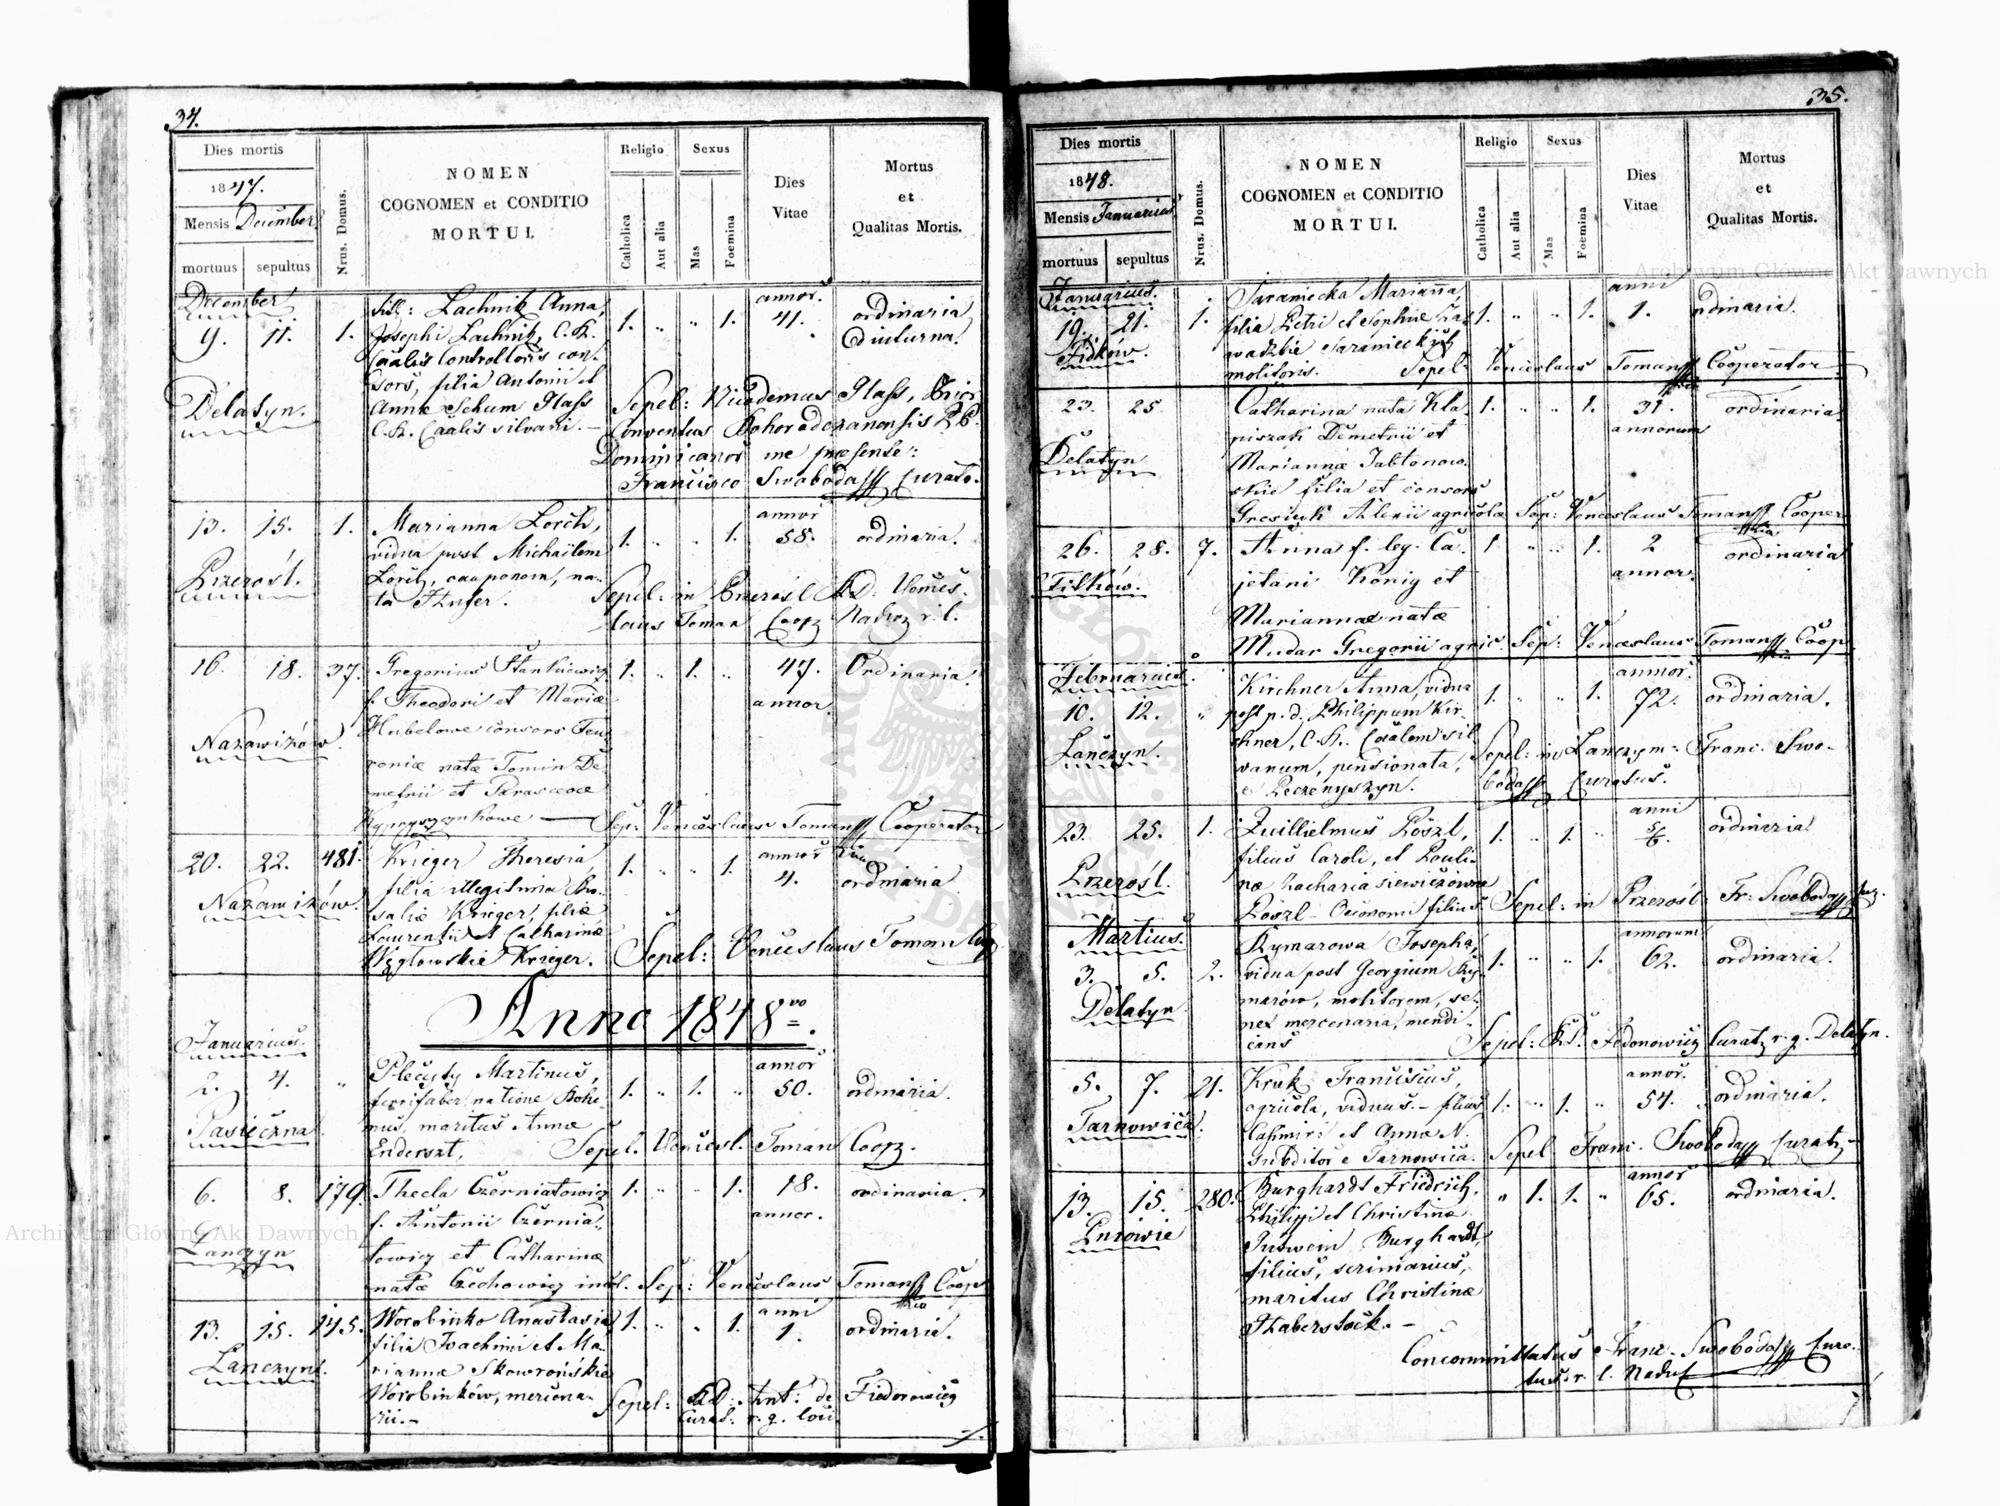 34.
Dies mortis
1847.
Mensis December
mortuus sepultus
Nrus. Domus.
NOMEN
COGNOMEN et CONDITIO
MORTUI.
Religio
Catholica
Aut alia
Sexus
Mas
Foemina
Dies
Vitae
Mortus
et
Qualitas Mortis.
December
9. 11. 1.
Delatyn.
Lachnik Anna,
Josephi Lachnik, C.R.
Caalis Controlloris con-
sors, filia Antonii et
Annæ Schum Glass
C.R. Caalis silvani.
1. " " 1.
annor.
41.
ordinaria
diuturna.
Sepel: Nicodemus Glass,
Conventus Bohorodczanensis
Dominicanor me præsente:
Francisco Swoboda Curato.
13. 15. 1.
Przerośl.
Marianna Lorch,
vidua post Michaëlem
Lorch, cauponem, na-
ta Anfer.
1. " " 1.
annor
58.
ordinaria.
Sepel: in Przerośl
laus Toman Coop Nadwor r. l.
16. 18. 37.
Nazawizów.
Gregorius Stankiewicz
f. Theodori et Mariæ
Hubelowe consors
roniæ natæ Tomin De-
metrii et Parascevæ
1. " 1. "
47.
annor.
Ordinaria.
Sep: Venceslaus Toman Cooperator
20. 22. 481.
Nazawizów.
Krieger Theresia
filia illegitima Ro-
saliæ Krieger, filiæ
Laurentii et Catharinæ
Węglowskie Krieger.
1. " " 1.
annor
4.
ordinaria
Sepel: Venceslaus Toman Coop
Anno 1848vo.
Januarius.
2. 4. "
Pasieczna.
Plecity Martinus,
ferrifaber, natione Bohe-
mus, maritus Annæ
Enderszt.
1. " 1. "
annor
50.
ordinaria.
Sepel. Vencesl. Toman Coop.
6. 8. 179.
Lanczyn
Thecla Czerniatowicz
f. Antonii Czernia-
towicz et Catharinæ
natæ Czechowicz
1. " " 1.
18.
annor.
ordinaria.
Sep: Venceslaus Toman Coop
13. 15. 145.
Lanczyn.
Worobinko Anastasia
filia Joachimi et Ma-
riannæ Skowrońskie
Worobinków, mercena-
rii.
1. " " 1.
anni
1.
ordinaria.
Sepel: RD: Ant: de Fiedorowicz
Curat: r. g. loci
35.
Dies mortis
1848.
Mensis Januarius
mortuus sepultus
Nrus. Domus.
NOMEN
COGNOMEN et CONDITIO
MORTUI.
Religio
Catholica
Aut alia
Sexus
Mas
Foemina
Dies
Vitae
Mortus
et
Qualitas Mortis.
Januarius.
19. 21. 1.
Fitków.
Saraniecka Marianna,
filia Petri et Sophiæ Za-
wadzkie Saranieckich
molitoris.
1. " " 1.
anni
1.
ordinaria.
Sepel. Venceslaus Toman Cooperator
23. 25.
Delatyn
Catharina nata Kla
piszak Demetrii et
Mariannæ Jabłonow-
skie filia et consors
Gresiuk Alexii agricolæ
1. " " 1.
31.
annorum
ordinaria
Sep: Venceslaus Toman Cooper
26. 28. 7.
Fitków.
Anna f. leg. Ca-
jetani König et
Mariannæ natæ
Mudar Gregorii agric.
1 " " 1.
2
annor.
ordinaria
Sep: Venceslaus Toman Coop
Februarius.
10. 12. "
Łanczyn.
Kirchner Anna, vidua
post p. d. Philippum Kir-
chner, C.R. Caalem sil-
vanum, pensionata,
e Peczenyszyn.
1. " " 1.
annor.
72.
ordinaria.
Sepel: in Lanczyn: Franc. Swo-
boda Curatus.
23. 25. 1.
Przerośl.
Wuillielmus Pöszl,
filius Caroli, et Pauli-
næ Zachariasiewiczówna
Pöszl - Oeconomi filius
1. " 1. "
anni
5/6.
ordinaria
Sepel: in Przerośl Fr: Swoboda Cur.
Martius.
3. 5. 2.
Delatyn.
Rymarowa Josepha,
vidua post Georgium Ry-
marów, molitorem, se-
nex mercenaria, mendi-
cans
1. " " 1.
annorum
62.
ordinaria.
Sepel: RD. Fedorowicz Curat. r. g. Delatyn.
5. 7. 21.
Tarnowica.
Kruk Franciscus,
agricola, viduus. - filius
Casimiri et Annæ N.
Subditor e Tarnowica.
1. " 1. "
annor.
54.
ordinaria.
Sepel Franc. Swoboda Curat.
13. 15. 280.
Pniowie
Burghardt Friedrich,
Philippi et Christinæ
Burghardt,
filius, scriniarius,
maritus Christinæ
Haberstock. -
" 1. 1. "
annor
65.
ordinaria.
Concommittatus Franc. Swoboda Cura-
tus r. l. Nadw
Archiwum Główne Akt Dawnych
Archiwum Główne Akt Dawnych